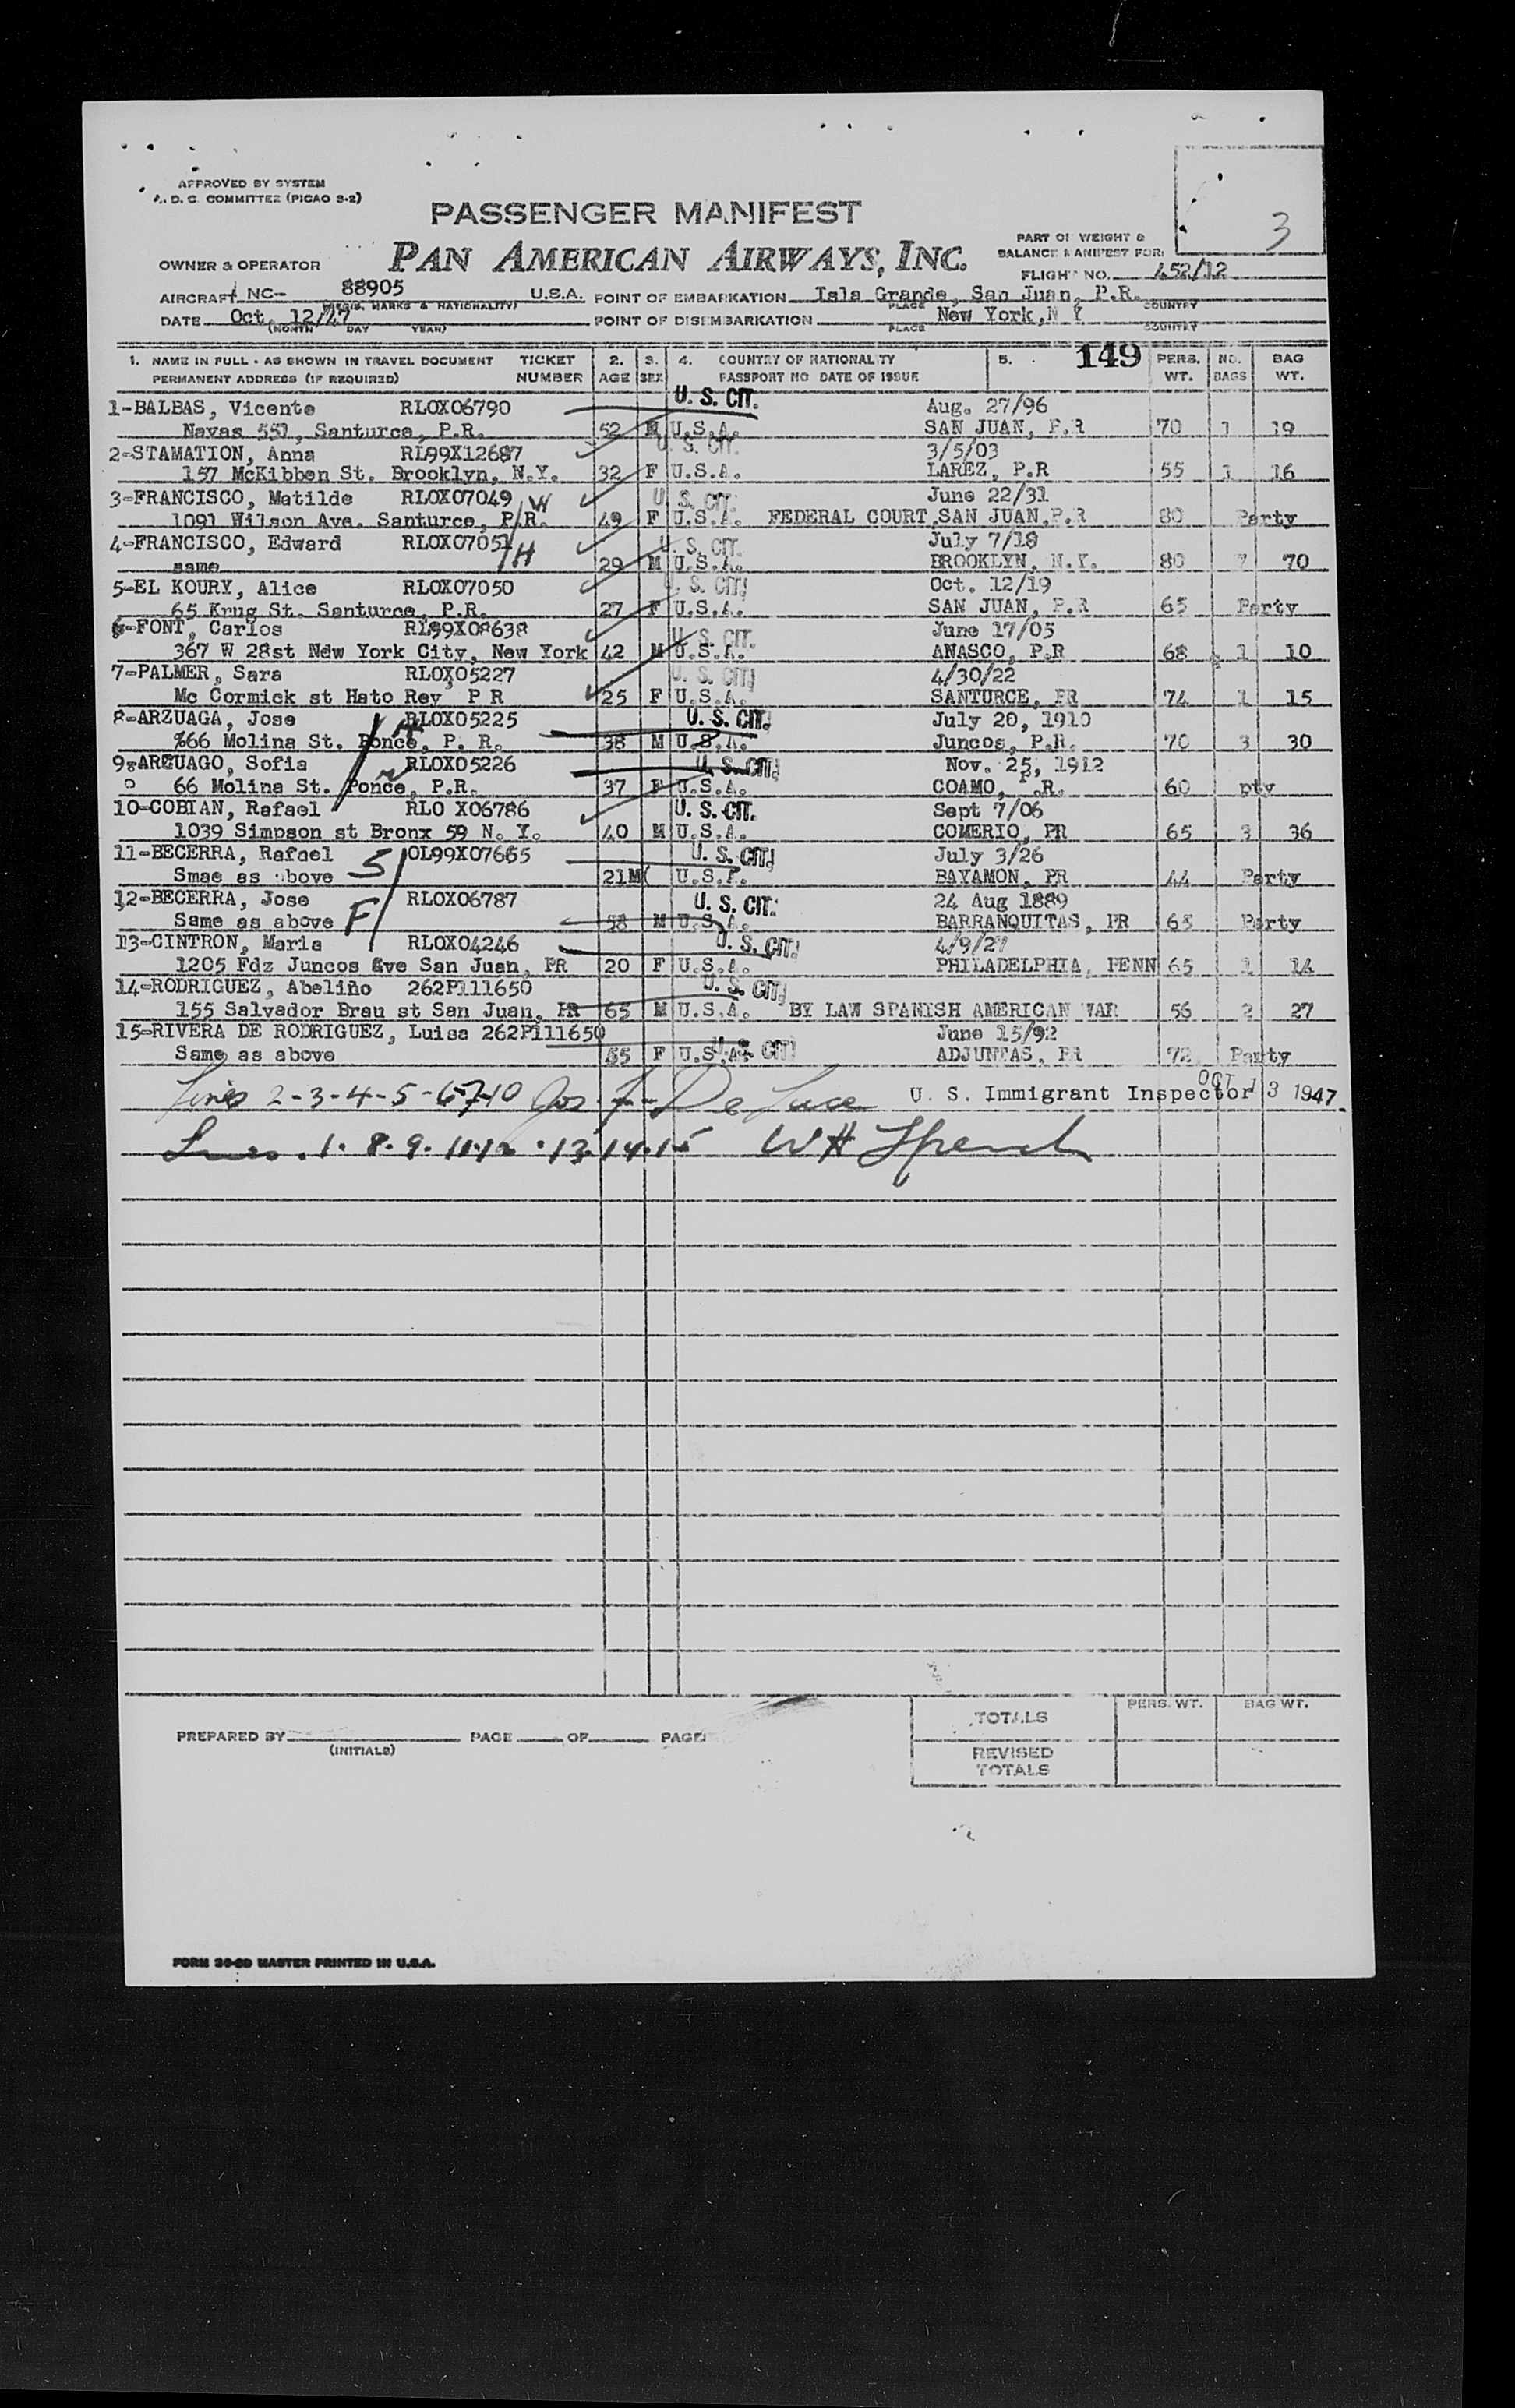 APPROVED BY SYSTEM
A. D. C. COMMITTEE (PICAO S-2)
3
PASSENGER MANIFEST
PAN AMERICAN AIRWAYS, INC.
PART OF WEIGHT &
BALANCE MANIFEST FOR:
OWNER & OPERATOR
FLIGHT NO. 452/12
AIRCRAFT NC-- 88905 U.S.A. POINT OF EMBARKATION Isla Grande, San Juan, P.R.
(REGIS. MARKS & NATIONALITY) PLACE COUNTRY
DATE Oct. 12/47 POINT OF DISEMBARKATION New York, N Y
(MONTH DAY YEAR) PLACE COUNTRY
1. NAME IN FULL - AS SHOWN IN TRAVEL DOCUMENT TICKET 2. 3. 4. COUNTRY OF NATIONALITY 5. 149 PERS. NO. BAG
PERMANENT ADDRESS (IF REQUIRED) NUMBER AGE SEX PASSPORT NO DATE OF ISSUE WT. BAGS WT.
1-BALBAS, Vicente RLOX06790 U. S. CIT. Aug. 27/96
Navas 551, Santurce, P.R. 52 M U.S.A. SAN JUAN, P.R 70 1 19
2-STAMATION, Anna RL99X12687 U. S. CIT. 3/5/03
157 McKibben St. Brooklyn, N.Y. 32 F U.S.A. LAREZ, P.R 55 1 16
3-FRANCISCO, Matilde RLOX07049 W U. S. CIT. June 22/31
1091 Wilson Ave. Santurce, P.R. 49 F U.S.A. FEDERAL COURT, SAN JUAN, P.R 80 Party
4-FRANCISCO, Edward RLOX07051 H U. S. CIT. July 7/18
same 29 M U.S.A. BROOKLYN, N.Y. 80 7 70
5-EL KOURY, Alice RLOX07050 U. S. CIT. Oct. 12/19
65 Krug St. Santurce, P.R. 27 F U.S.A. SAN JUAN, P.R 65 Party
6-FONT, Carlos RL99X08638 U. S. CIT. June 17/05
367 W 28st New York City, New York 42 M U.S.A. ANASCO, P.R 68 1 10
7-PALMER, Sara RLOX05227 U. S. CIT. 4/30/22
Mc Cormick st Hato Rey P R 25 F U.S.A. SANTURCE, PR 74 1 15
8-ARZUAGA, Jose RLOX05225 U. S. CIT. July 20, 1910
%66 Molina St. Ponce, P. R. 38 M U.S.A. Juncos, P.R. 70 3 30
9-ARZUAGO, Sofia RLOX05226 U. S. CIT. Nov. 25, 1912
66 Molina St. Ponce, P.R. 37 F U.S.A. COAMO, P.R. 60 pty
10-COBIAN, Rafael RLO X06786 U. S. CIT. Sept 7/06
1039 Simpson st Bronx 59 N. Y. 40 M U.S.A. COMERIO, PR 65 3 36
11-BECERRA, Rafael S OL99X07665 U. S. CIT. July 3/26
Smae as above 21 M U.S.A. BAYAMON, PR 44 Party
12-BECERRA, Jose F RLOX06787 U. S. CIT. 24 Aug 1889
Same as above 58 M U.S.A. BARRANQUITAS, PR 65 Party
13-CINTRON, Maria RLOX04246 U. S. CIT. 4/9/27
1205 Fdz Juncos Ave San Juan, PR 20 F U.S.A. PHILADELPHIA, PENN 65 1 14
14-RODRIGUEZ, Abeliño 262P111650 U. S. CIT.
155 Salvador Brau st San Juan, PR 65 M U.S.A. BY LAW SPANISH AMERICAN WAR 56 2 27
15-RIVERA DE RODRIGUEZ, Luisa 262P111650 U. S. CIT. June 15/92
Same as above 55 F U.S.A. ADJUNTAS, PR 72 Party
Lines 2-3-4-5-6-7-10 Jos. De Luca U. S. Immigrant Inspector OCT 13 1947
Lines 1. 8. 9. 11. 12. 13. 14. 15 W H
PREPARED BY PAGE OF PAGE
(INITIALS)
PERS. WT. BAG WT.
TOTALS
REVISED
TOTALS
FORM 36-SD MASTER PRINTED IN U.S.A.